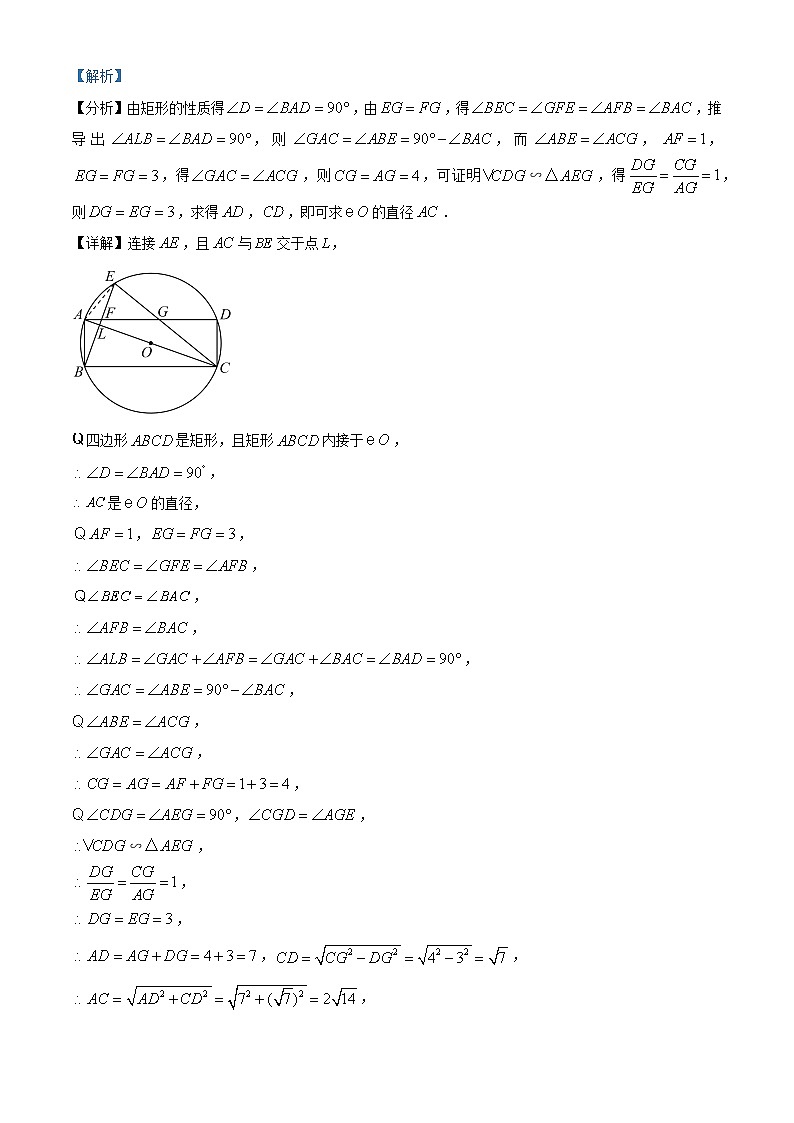 【解析】
【分析】由矩形的性质得∠D=∠BAD=90°,由EG=FG,得∠BEC=∠GFE=∠AFB=∠BAC,推
导出∠ALB=∠BAD=90°,则∠GAC=∠ABE=90°−∠BAC,而∠ABE=∠ACG,AF=1,
EG=FG=3,得∠GAC=∠ACG,则CG=AG=4,可证明VCDG∽△AEG,得DG/EG=CG/AG=1,
则DG=EG=3,求得AD,CD,即可求e O的直径AC.
【详解】连接AE,且AC与BE交于点L,
E
A F G D
L
O
B C
Q四边形ABCD是矩形,且矩形ABCD内接于e O,
∴∠D=∠BAD=90°,
∴AC是e O的直径,
Q AF=1,EG=FG=3,
∴∠BEC=∠GFE=∠AFB,
Q∠BEC=∠BAC,
∴∠AFB=∠BAC,
∴∠ALB=∠GAC+∠AFB=∠GAC+∠BAC=∠BAD=90°,
∴∠GAC=∠ABE=90°−∠BAC,
Q∠ABE=∠ACG,
∴∠GAC=∠ACG,
∴CG=AG=AF+FG=1+3=4,
Q∠CDG=∠AEG=90°,∠CGD=∠AGE,
∴VCDG∽△AEG,
∴DG/EG=CG/AG=1,
∴DG=EG=3,
∴AD=AG+DG=4+3=7,CD=√(CG²−DG²)=√(4²−3²)=√7,
∴AC=√(AD²+CD²)=√(7²+(√7)²)=2√14,